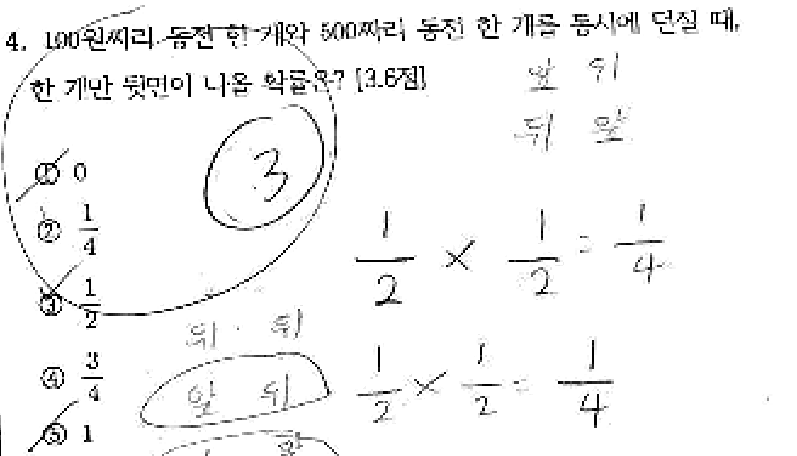 4. 100원짜리 동전 한 개와 500짜리 동전 한 개를 동시에 던질 때,
한 개만 뒷면이 나올 확률은? [3.6점]
앞 뒤
뒤 앞
① 0
3
② 1/4
1/2 × 1/2 = 1/4
③ 1/2
뒤 뒤
④ 3/4
앞 뒤
1/2 × 1/2 = 1/4
⑤ 1